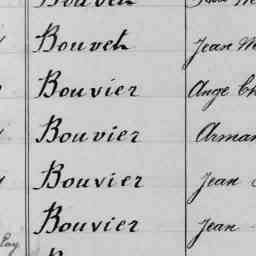 Bouvet
Bouvet Jean M
Bouvier Ange Ch
Bouvier Arman
Bouvier Jean
Bouvier Jean